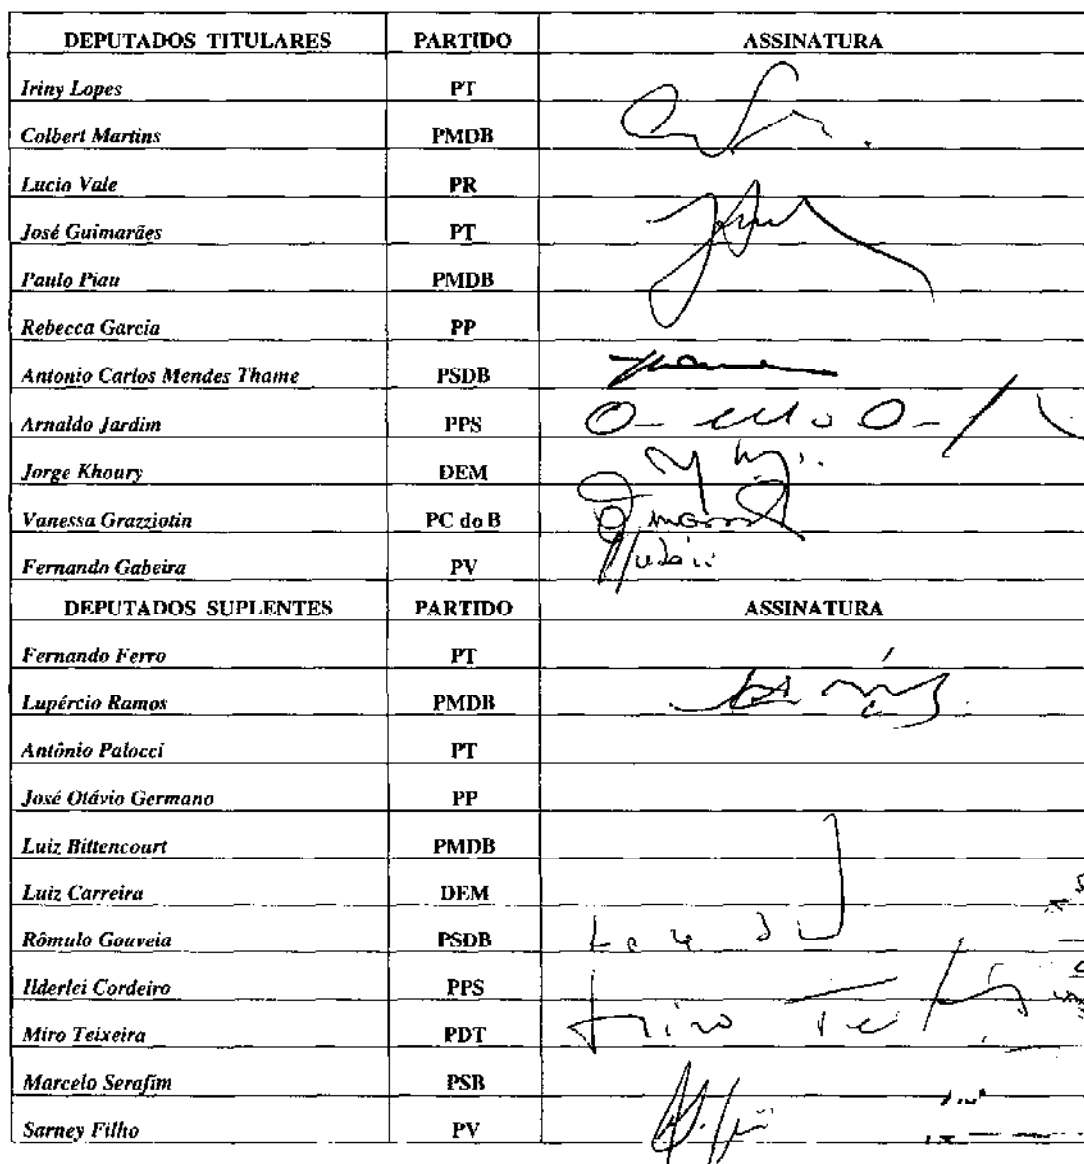 DEPUTADOS TITULARES PARTIDO ASSINATURA
Iriny Lopes PT
Colbert Martins PMDB
Lucio Vale PR
José Guimarães PT
Paulo Piau PMDB
Rebecca Garcia PP
Antonio Carlos Mendes Thame PSDB
Arnaldo Jardim PPS
Jorge Khoury DEM
Vanessa Grazziotin PC do B
Fernando Gabeira PV
DEPUTADOS SUPLENTES PARTIDO ASSINATURA
Fernando Ferro PT
Lupércio Ramos PMDB
Antônio Palocci PT
José Otávio Germano PP
Luiz Bittencourt PMDB
Luiz Carreira DEM
Rômulo Gouveia PSDB
Ilderlei Cordeiro PPS
Miro Teixeira PDT Miro Teixeira
Marcelo Serafim PSB
Sarney Filho PV